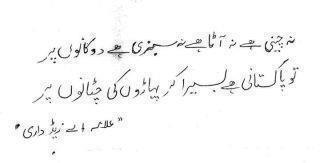 نہ چینی ہے نہ آٹا ہے نہ سبزی ہے دوکانوں پر
تو پاکستانی ہے بسیرا کر پہاڑوں کی چٹانوں پر
"علامہ اے زیڈ داری"